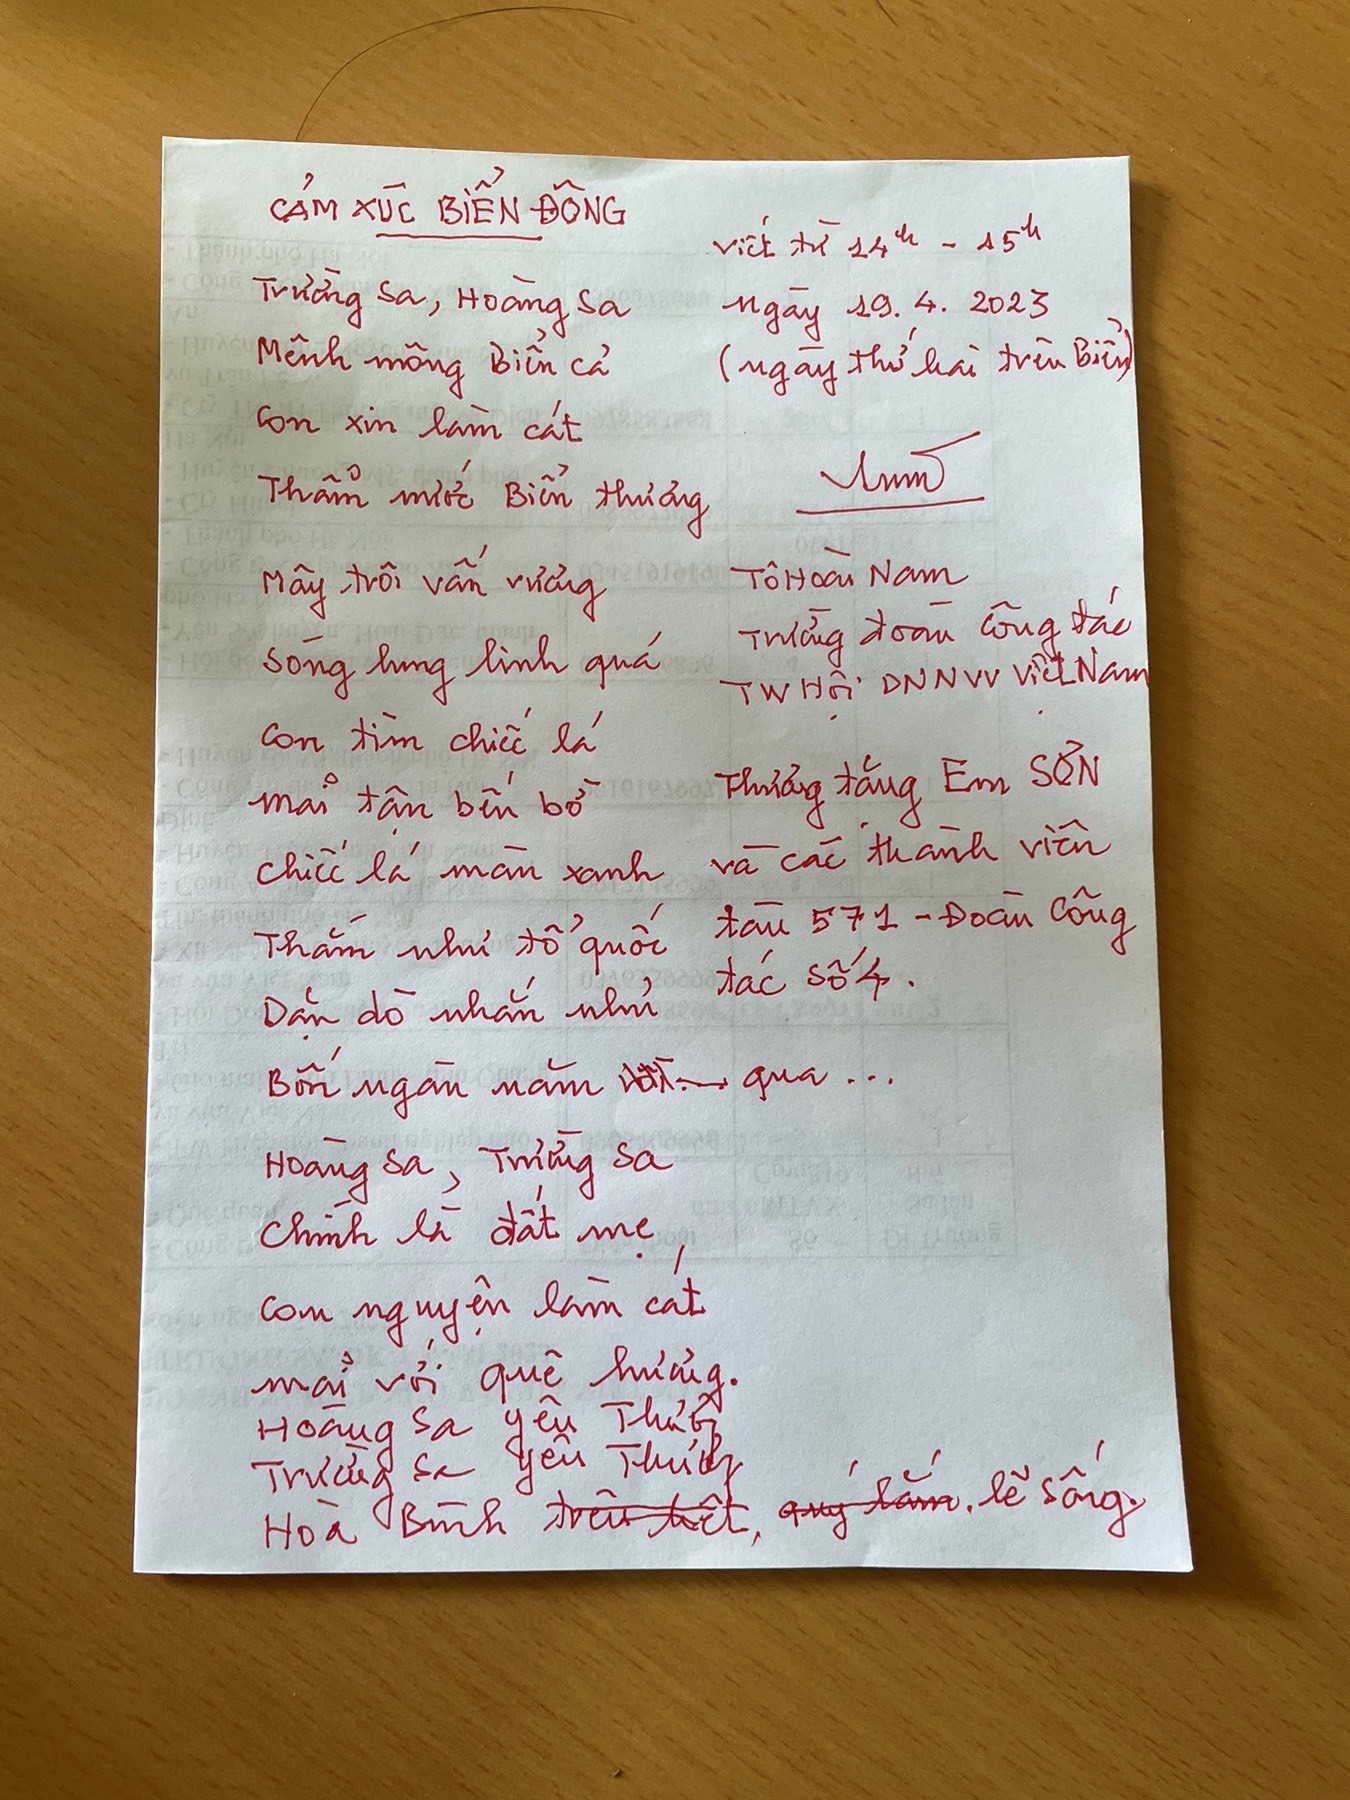 CẢM XÚC BIỂN ĐÔNG
Trường Sa, Hoàng Sa
Mênh mông Biển cả
Con xin làm cát
Thẩm nước Biển thương
Mây trôi vấn vương
Sóng lung linh quá
Con tìm chiếc lá
Mãi tận bến bờ
Chiếc lá màu xanh
Thắm như tổ quốc
Dặn dò nhắn nhủ
Bốn ngàn năm qua...
Hoàng Sa, Trường Sa
Chính là đất mẹ
Con nguyện làm cát
Mãi với quê hương.
Hoàng Sa yêu Thương
Trường Sa yêu Thương
Hòa Bình trên hết, quý lắm. lẽ sống.
Viết từ 14h - 15h
Ngày 19.4.2023
(Ngày thứ hai trên Biển)
Tô Hoài Nam
Trưởng đoàn Công tác
TW Hội DNNVV Việt Nam
Thương tặng Em SƠN
và các thành viên
tàu 571 - Đoàn Công
tác số 4.